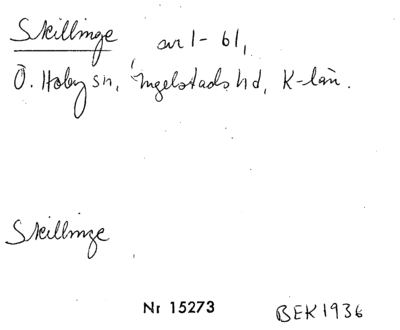 Skillinge avr 1 - 61,
Ö. Hoby sn, Ingelstads hd, K-län.
Skillinge
Nr 15273 BEK 1936